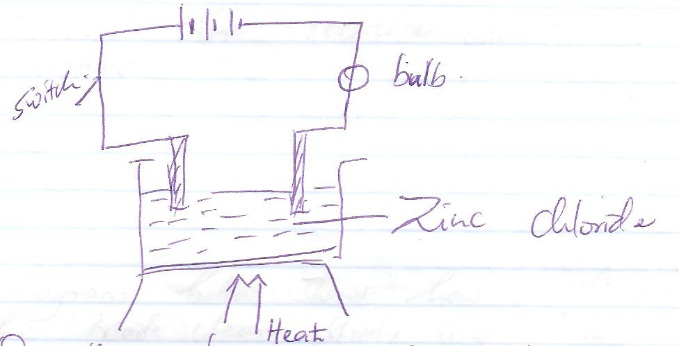 switch
bulb.
Zinc chloride
Heat